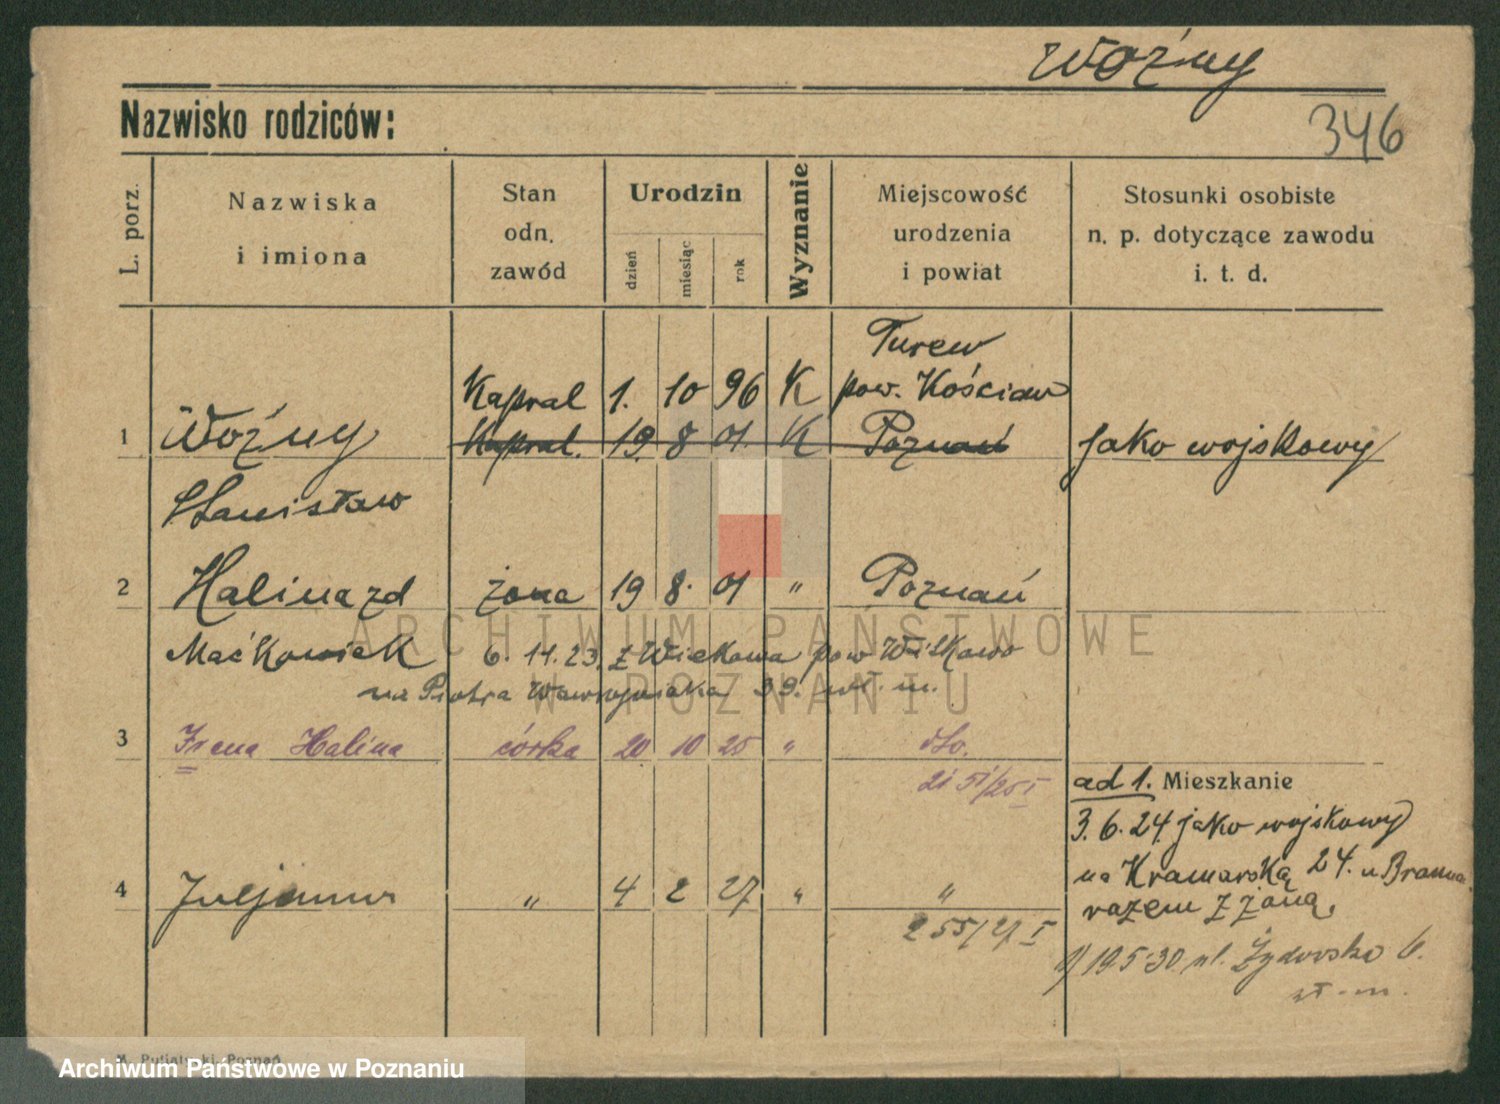 Woźny
346
Nazwisko rodziców:
L. porz.
Nazwiska
i imiona
Stan
odn.
zawód
Urodzin
dzień
miesiąc
rok
Wyznanie
Miejscowość
urodzenia
i powiat
Stosunki osobiste
n. p. dotyczące zawodu
i. t. d.
Turew
Kapral 1. 10 96 K pow. Kościan
1 Woźny Kapral. 19. 8 01 K Poznań Jako wojskowy
Stanisław
2 Halina zd żona 19 8. 01 " Poznań
Maćkowiak 6. 11. 23. z Wiekowa pow Witkowo
na Piotra Wawrzyniaka 39. wł. m.
3 Irena Halina córka 20 10 25 " dto.
ad 1. Mieszkanie
3. 6. 24 jako wojskowy
na Kramarską 24. u
razem z żoną.
4 " 4 2 27 " "
255/27 I
19 5 30 ul. Żydowska 6.
wł. m.
M. Putiatycki, Poznań
ARCHIWUM PAŃSTWOWE
W POZNANIU
Archiwum Państwowe w Poznaniu